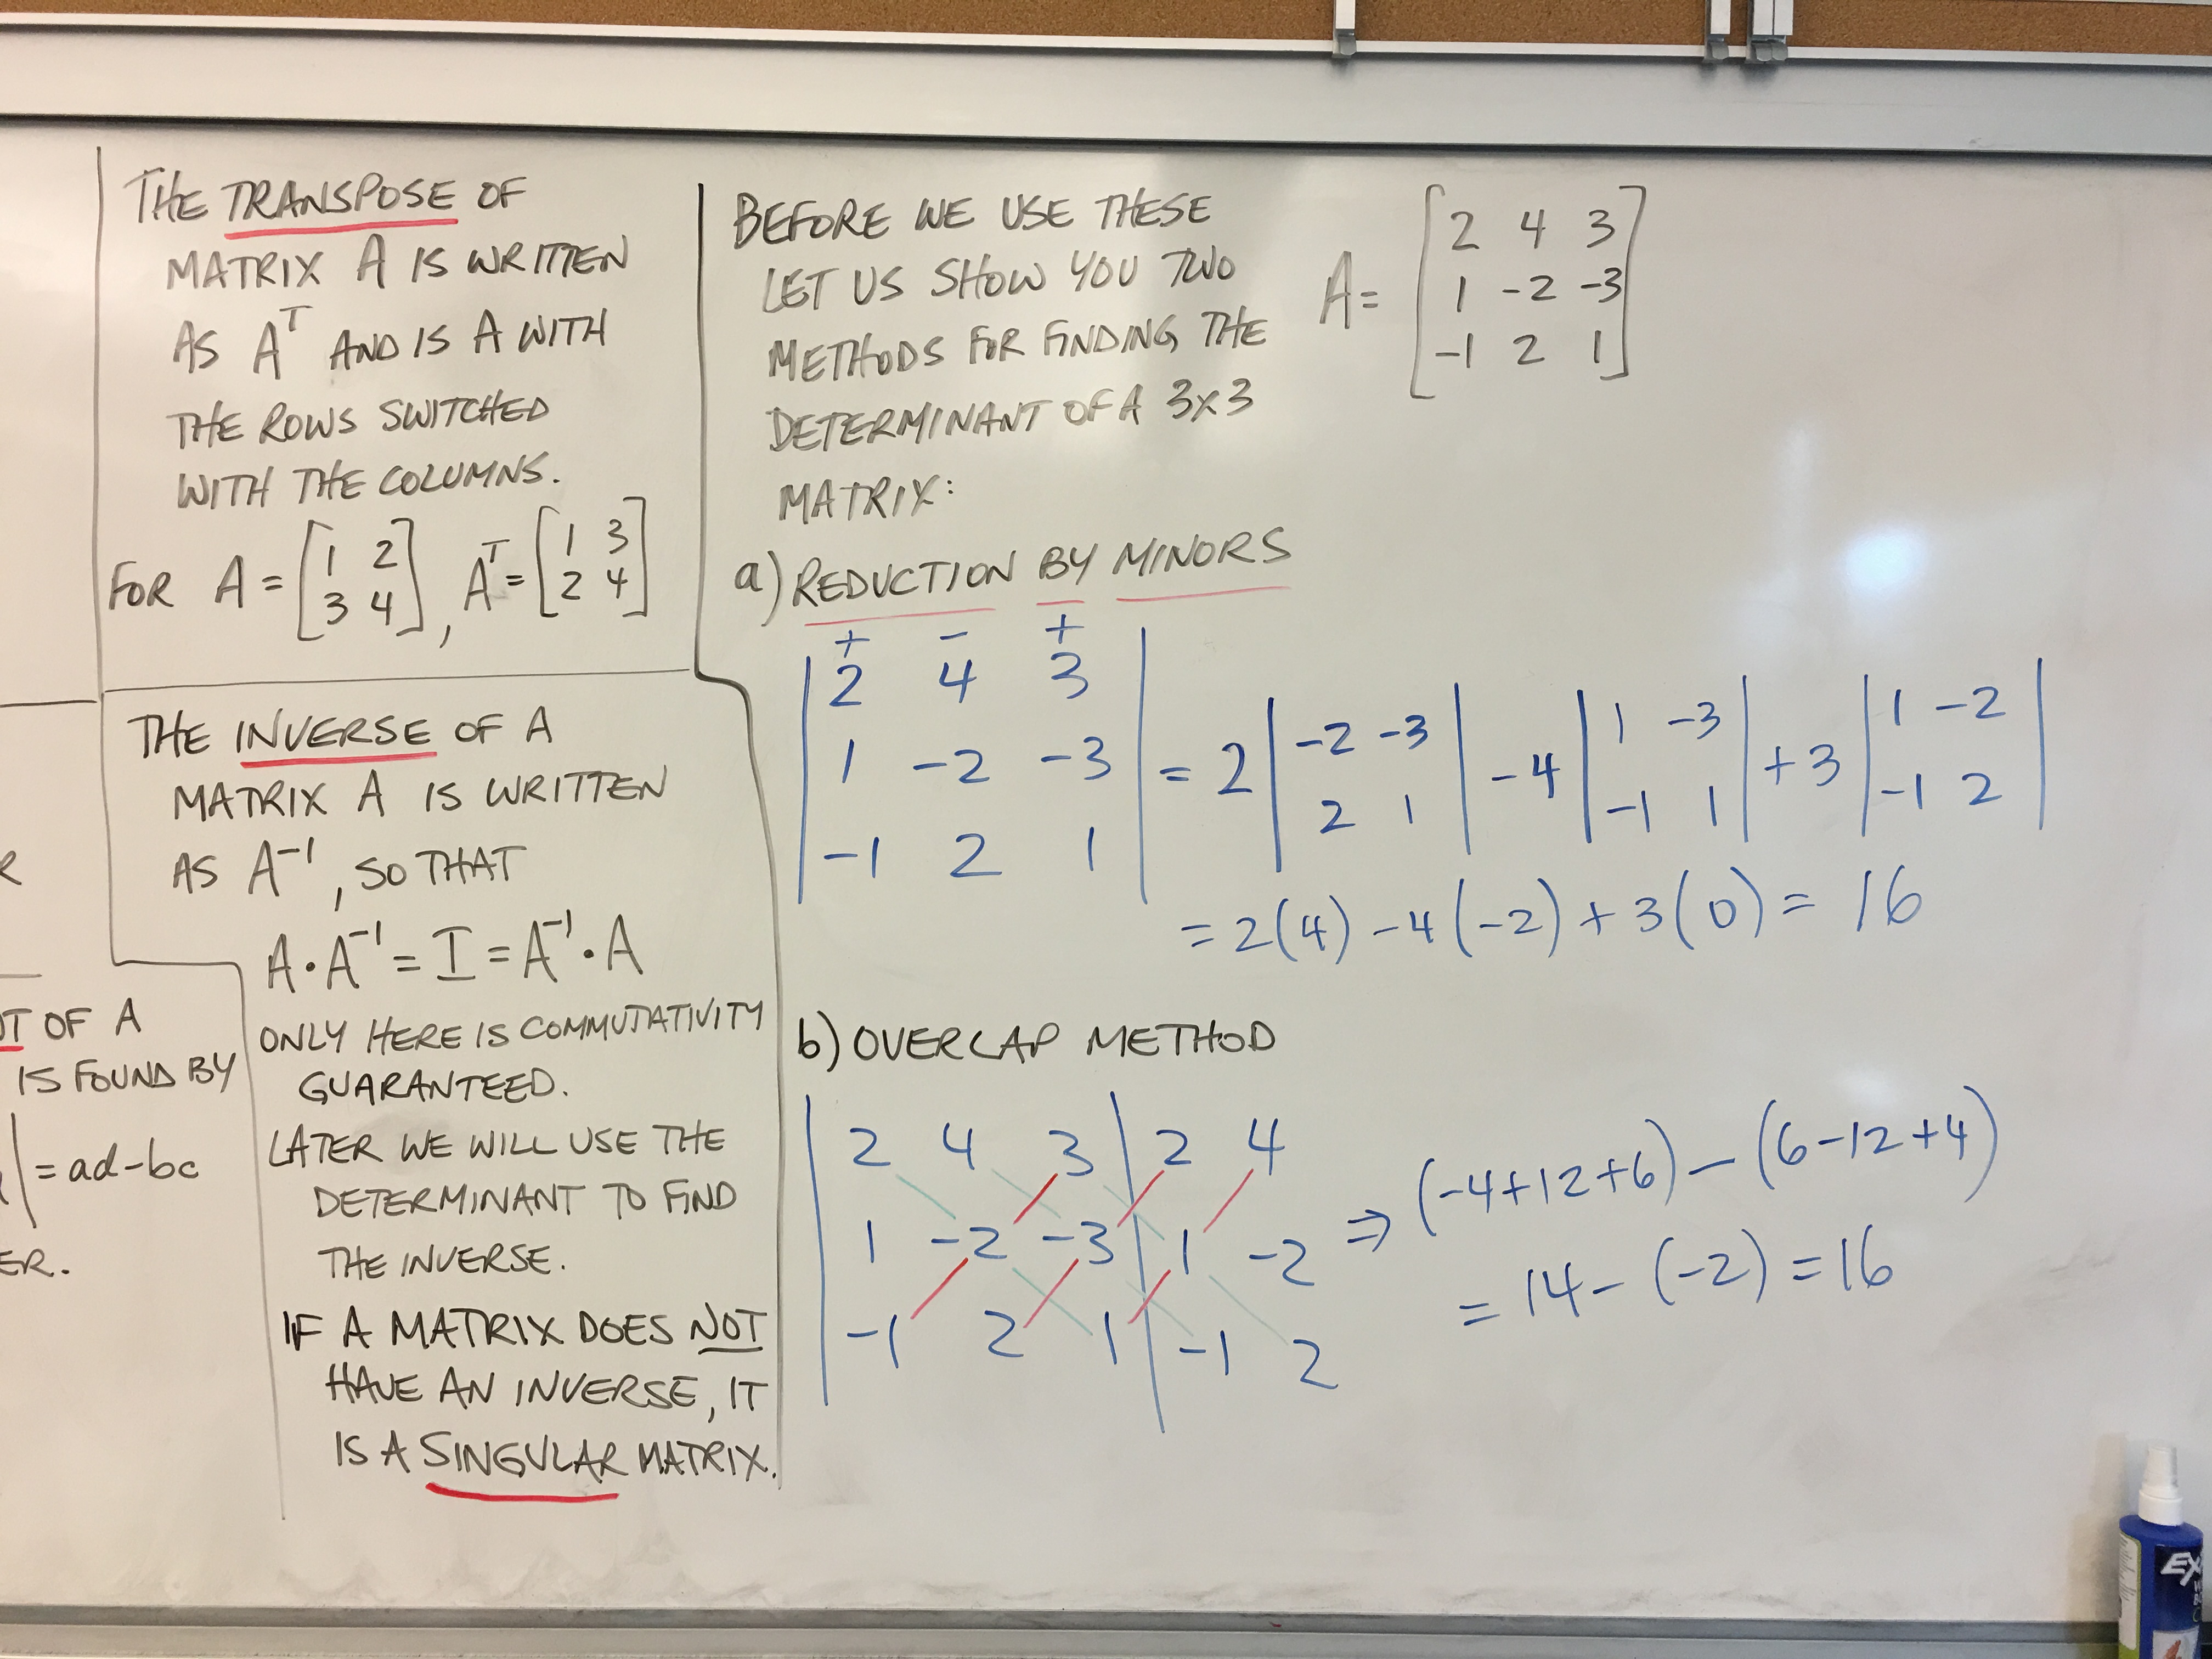 THE TRANSPOSE OF
MATRIX A IS WRITTEN
AS A^T AND IS A WITH
THE ROWS SWITCHED
WITH THE COLUMNS.
FOR A = [1 2
3 4], A^T = [1 3
2 4]
THE INVERSE OF A
MATRIX A IS WRITTEN
AS A⁻¹, SO THAT
A·A⁻¹ = I = A⁻¹·A
ONLY HERE IS COMMUTATIVITY
GUARANTEED.
LATER WE WILL USE THE
DETERMINANT TO FIND
THE INVERSE.
IF A MATRIX DOES NOT
HAVE AN INVERSE, IT
IS A SINGULAR MATRIX.
OF A
IS FOUND BY
| = ad-bc
BEFORE WE USE THESE
LET US SHOW YOU TWO
METHODS FOR FINDING THE
DETERMINANT OF A 3x3
MATRIX:
A = [2 4 3
1 -2 -3
-1 2 1]
a) REDUCTION BY MINORS
+ - +
|2 4 3
1 -2 -3
-1 2 1| = 2 |-2 -3
2 1| -4 |1 -3
-1 1| +3 |1 -2
-1 2|
= 2(4) -4(-2) + 3(0) = 16
b) OVERLAP METHOD
|2 4 3| 2 4
1 -2 -3| 1 -2
-1 2 1| -1 2
⇒ (-4+12+6) - (6-12+4)
= 14 - (-2) = 16
EX